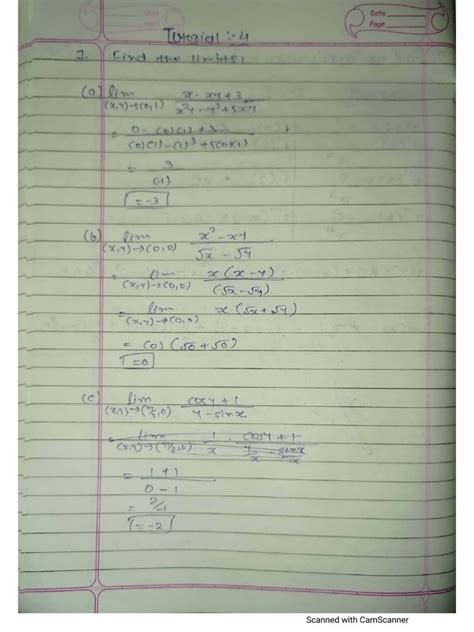 Date
Page
Tutorial :- 4
1. Find the limits:
(a) lim (x,y)→(0,1) x - xy + 3 / x²y - y³ + 5xy
= 0 - (0)(1) + 3 / (0)(1) - (1)³ + 5(0)(1)
= 3 / (-1)
= -3
(b) lim (x,y)→(0,0) x² - xy / √x - √y
= lim (x,y)→(0,0) x(x-y) / (√x - √y)
= lim (x,y)→(0,0) x(√x + √y)
= (0)(√0 + √0)
= 0
(c) lim (x,y)→(π/2,0) cosy + 1 / y - sinx
= 1 + 1 / 0 - 1
= 2/-1
= -2
Scanned with CamScanner